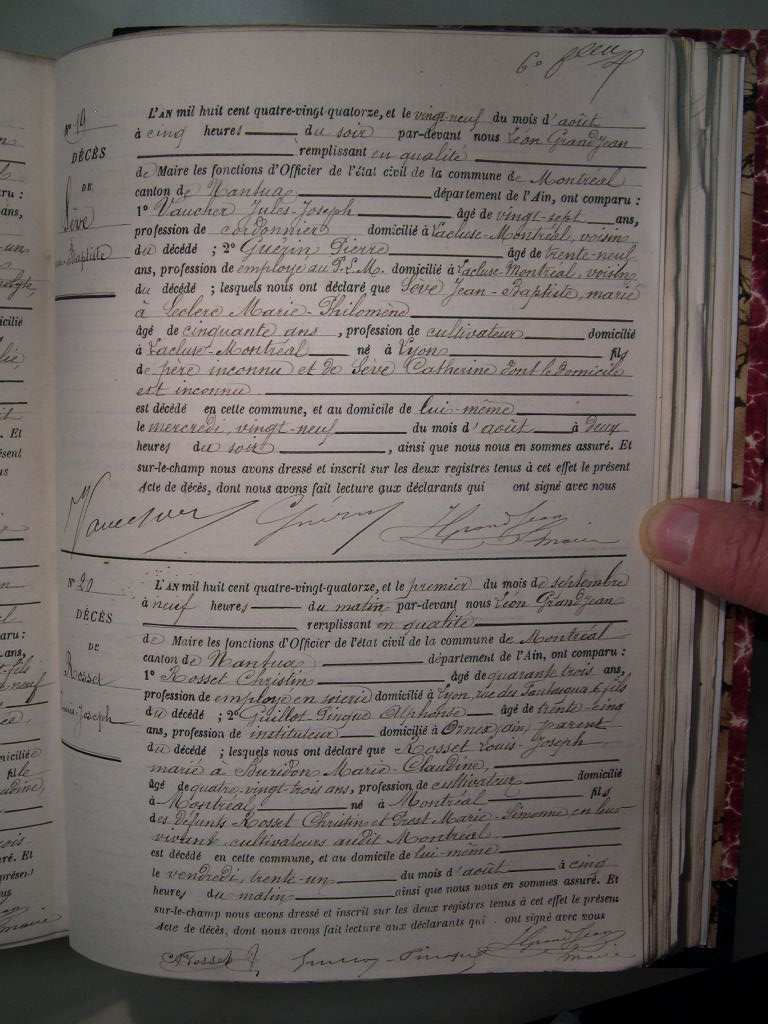 6e
Nº 19
DÉCÈS
DE
Sève
Baptiste
L'AN mil huit cent quatre-vingt quatorze, et le vingt-neuf du mois d'août
à cinq heures du soir par-devant nous Léon Grandjean
remplissant en qualité
de Maire les fonctions d'Officier de l'état civil de la commune de Montréal
canton de Nantua département de l'Ain, ont comparu :
1º Vaucher Jules-Joseph âgé de vingt-sept ans,
profession de cordonnier domicilié à Lacluse-Montréal, voisin
du décédé ; 2º Guérin Pierre âgé de trente-neuf
ans, profession de employé au P.L.M. domicilié à Lacluse-Montréal, voisin
du décédé ; lesquels nous ont déclaré que Sève Jean-Baptiste, marié
à Leclerc Marie-Philomène
âgé de cinquante ans, profession de cultivateur domicilié
à Lacluse-Montréal né à Lyon fils
de père inconnu et de Sève Catherine dont le domicile
est inconnu
est décédé en cette commune, et au domicile de lui-même
le mercredi, vingt-neuf du mois d'août à deux
heures du soir, ainsi que nous nous en sommes assuré. Et
sur-le-champ nous avons dressé et inscrit sur les deux registres tenus à cet effet le présent
Acte de décès, dont nous avons fait lecture aux déclarants qui ont signé avec nous
Vaucher Guérin LGrandJean
maire
Nº 20
DÉCÈS
DE
Rosset
Louis-Joseph
L'AN mil huit cent quatre-vingt-quatorze, et le premier du mois de septembre
à neuf heures du matin par-devant nous Léon Grandjean
remplissant en qualité
de Maire les fonctions d'Officier de l'état civil de la commune de Montréal
canton de Nantua département de l'Ain, ont comparu :
1º Rosset Christin âgé de quarante trois ans,
profession de employé en soierie domicilié à Lyon, rue du 6, fils
du décédé ; 2º Guillot Pingue Alphonse âgé de trente-cinq
ans, profession de instituteur domicilié à Ornex (Ain) parent
du décédé ; lesquels nous ont déclaré que Rosset Louis-Joseph
marié à Buridon Marie-Claudine,
âgé de quatre-vingt-trois ans, profession de cultivateur domicilié
à Montréal né à Montréal fils
des défunts Rosset Christin et Prost Marie-Simonne, en leur
vivant cultivateurs audit Montréal
est décédé en cette commune, et au domicile de lui-même
le vendredi, trente-un du mois d'août à cinq
heures du matin ainsi que nous nous en sommes assuré. Et
sur-le-champ nous avons dressé et inscrit sur les deux registres tenus à cet effet le présent
Acte de décès, dont nous avons fait lecture aux déclarants qui ont signé avec nous
Rosset LGrandJean
maire